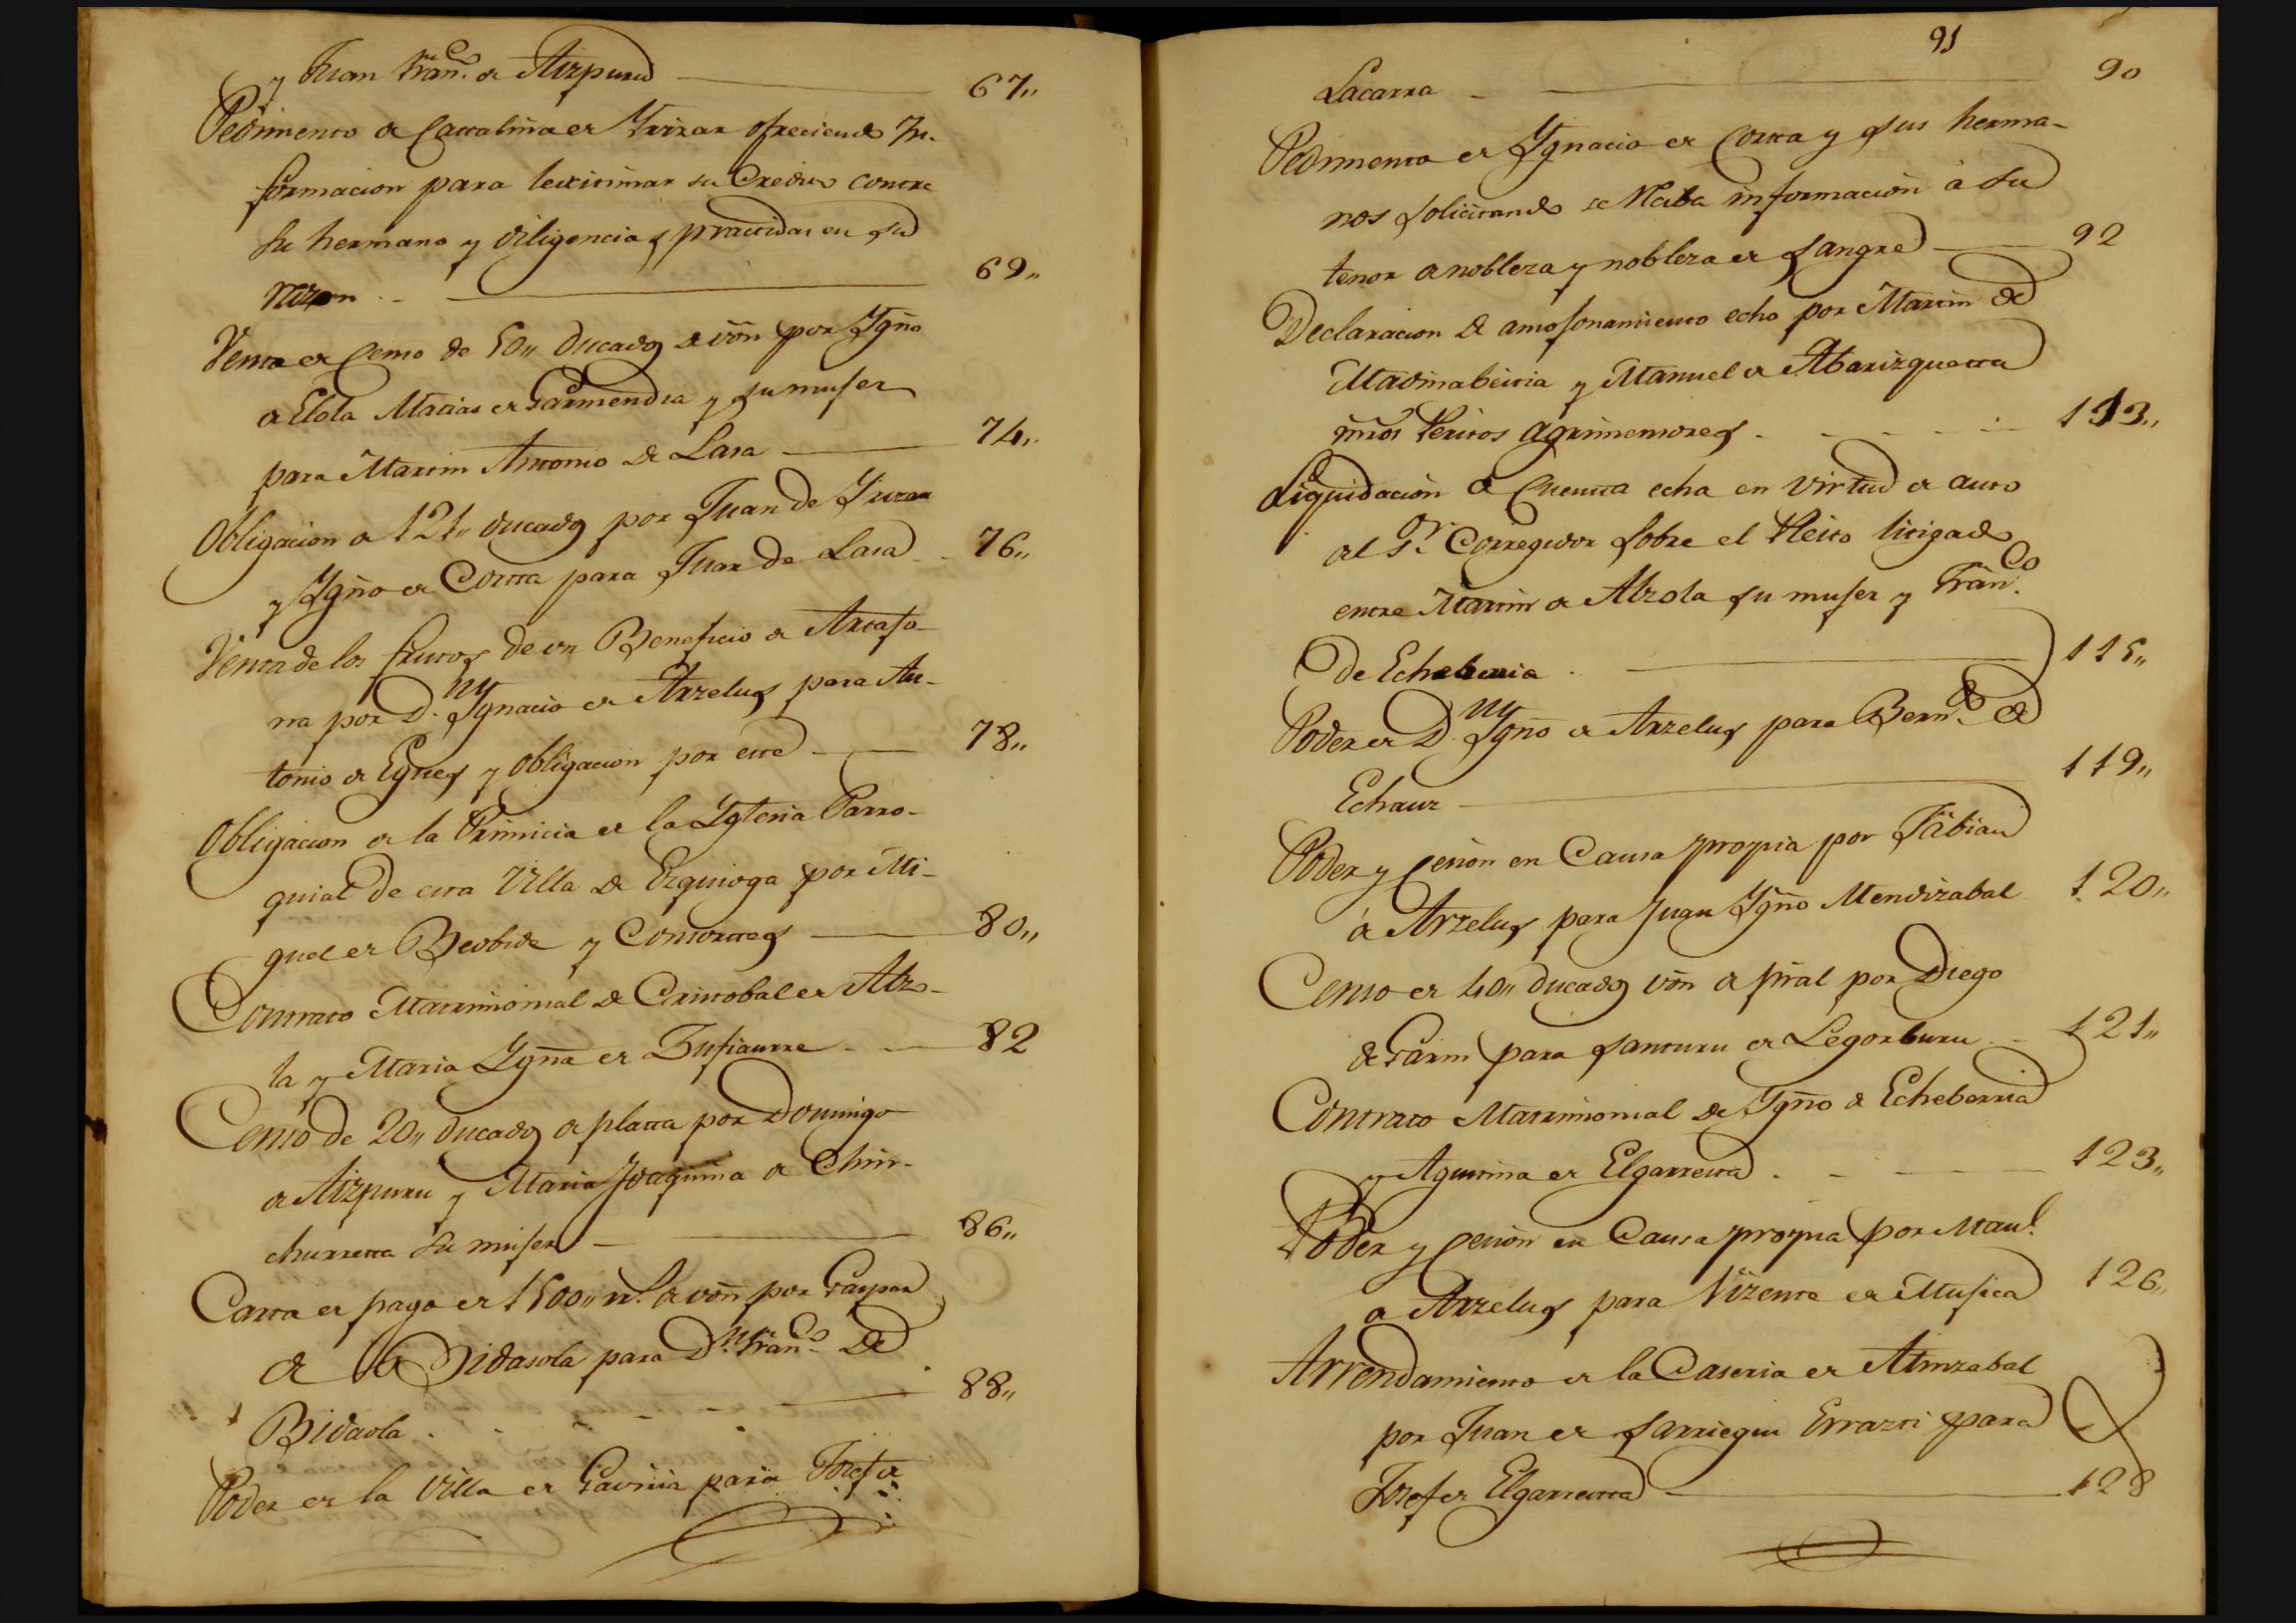 y Juan Fran.co de Aizpuru 67,,
Pedimento de Cattalina de Yrizar ofreciendo In-
formacion para lexitimar su Credito contra
su hermano y diligencias practticadas en su
razon 69,,
Venta de Censo de 50,, ducados de von por Ygno
de Elola Matias de Garmendia y su muger
para Martin Antonio de Lasa 74,,
Obligacion de 121,, ducados por Juan de Yrizar
y Ygno de Cortta para Juan de Lasa 76,,
Venta de los frutos de un Beneficio de Astaso-
na por D.n Ygnacio de Arzelus para An-
tonio de Egues y obligacion por este 78,,
Obligacion de la Primicia de la Yglesia Parro-
quial de esta Villa de Ezquioga por Mi-
guel de Beobide y Consorttes 80,,
Contrato Matrimonial de Cristobal de Alzo-
la y Maria Ygna de Zufiaurre 82
Censo de 20,, ducados de platta por Domingo
de Aizpuru y Maria Joaquina de Chin-
churretta su muger 86,,
Carta de pago de 1500,, rs. de von por Gaspar
de Bidasola para D.n Fran.co de
Bidaola 88,,
Poder de la Villa de Gaviria para Josef de
91
Lacarra 90
Pedimento de Ygnacio de Cortta y sus herma-
nos solicitando se reciba informacion á su
tenor de nobleza y nobleza de sangre 92
Declaracion de amojonamiento echo por Martin de
Madinabeitia y Manuel de Abarizquetta
mros Peritos agrimensores 113,,
Liquidacion de Cuentta echa en virtud de auto
del S.r Corregidor sobre el Pleito litigado
entre Martin de Alzola su muger y Fran.co
de Echeberria 115,,
Poder de D.n Ygno de Arzelus para Bern.do de
Echauz 119,,
Poder y Cesion en Causa propia por Fabian
de Arzelus para Juan Ygno Mendizabal 120,,
Censo de 40,, ducados von de pral por Diego
de Garin para Santuru de Legorburu 121,,
Contrato Matrimonial de Ygno de Echeberria
y Agustina de Elgarresta 123,,
Poder y Cesion en Causa propia por Manl.
de Arzelus para Vizente de Mugica 126,,
Arrendamiento de la Caseria de Alinzabal
por Juan de Sarriegui Errazti para
Josef de Elgarresta 128